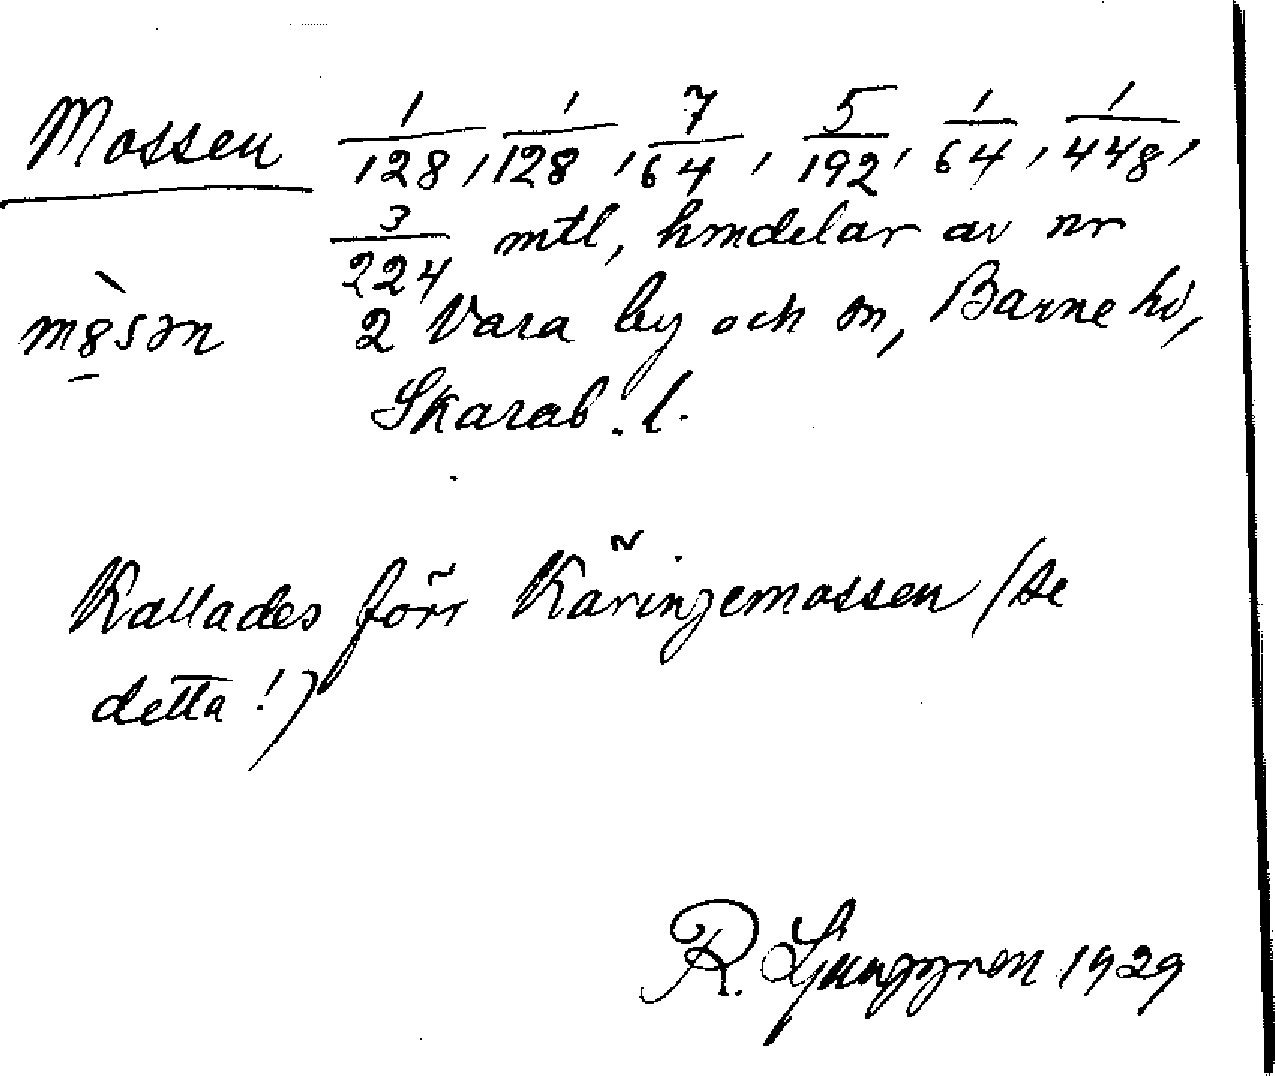 Mossen 1/128, 1/128, 7/64, 5/192, 1/64, 1/448,
3/224 mtl, hmdelar av nr
mò̱8sən 2 Vara by och sn, Barne hd,
Skarab. l.
Kallades förr Käringemossen (se
detta!)
R. Ljunggren 1929